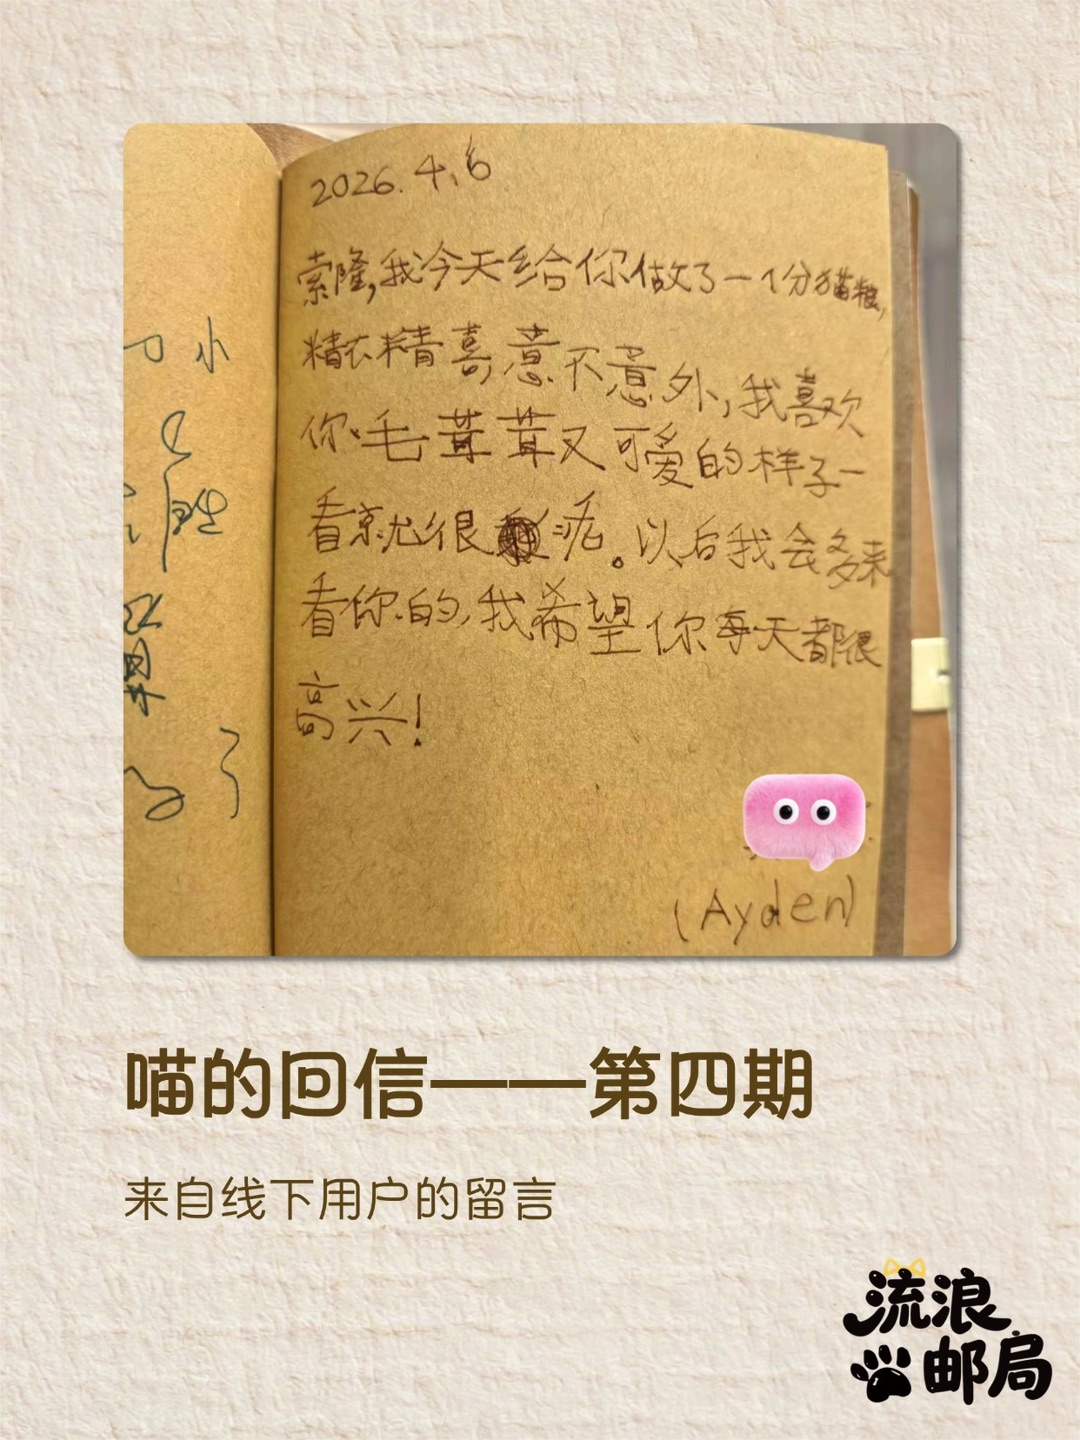 2026.4.6
索隆,我今天给你做了一个分猫粮,
精衣精喜意不意外,我喜欢
你毛茸茸又可爱的样子一
看就很活。以后我会多来
看你的,我希望你每天都很
高兴!
(Ayden)
小
了
喵的回信——第四期
来自线下用户的留言
流浪
邮局